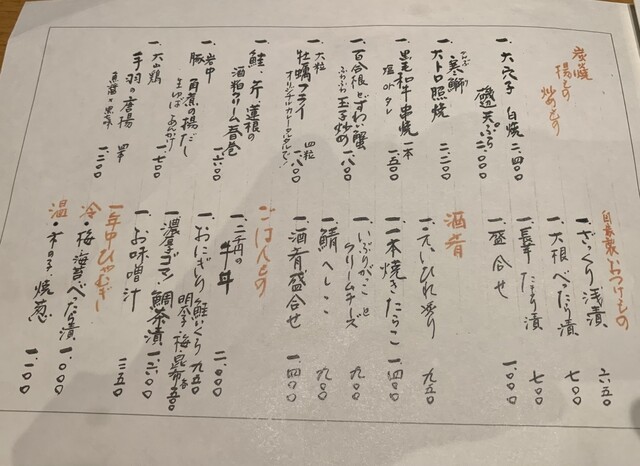 炭焼
揚もの
炒めもの
一、大穴子 白焼 二、四〇〇
磯辺天ぷら 二、〇〇〇
一、つぶ
寒鰤
大トロ照焼 二、二〇〇
一、黒毛和牛串焼 一本
塩 or タレ 一、五〇〇
一、百合根とずわい蟹
ふわふわ 玉子炒め 一、八〇〇
一、大粒
牡蠣フライ 四粒
オリジナルカレータルタルで! 一、八〇〇
一、鮭、芹、蓮根の
酒粕クリーム春巻 一、六〇〇
一、岩中
豚 角煮の揚だし
生ゆばあんかけ 一、七〇〇
一、大山鶏
手羽の唐揚 一、二〇〇
自家製いつけもの
一、ざっくり浅漬 六五〇
一、大根べったり漬 七〇〇
一、長芋たまり漬 七〇〇
一、盛合せ 一、〇〇〇
酒肴
一、えいひれ炙り 九五〇
一、一本焼きたらこ 一、四〇〇
一、いぶりがっことクリームチーズ 九〇〇
一、鯖へしこ 九〇〇
一、酒肴盛合せ 一、四〇〇
ごはんもの
一、牛丼 二、〇〇〇
一、おにぎり 鮭いくら 九五〇
明太子 梅 昆布 各五〇〇
一、濃厚ゴマ鯛茶漬 一、六〇〇
一、お味噌汁 三五〇
一年中ひやむぎ
冷・梅海苔べったら漬 一、〇〇〇
温・木の子、焼葱 一、一〇〇